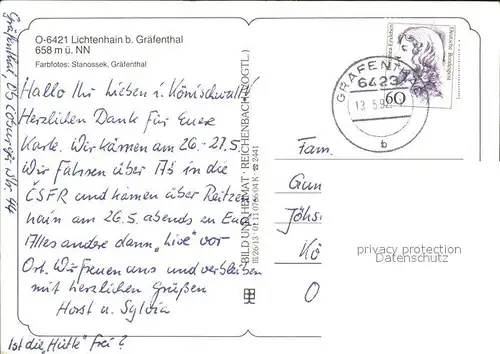 O-6421 Lichtenhain b. Gräfenthal
658 m ü. NN
Farbfotos: Stanossek, Gräfenthal
Hallo Ihr Lieben i. Königswalde
Herzlichen Dank für Eure
Karte. Wir kämen am 26.-27.5.
Wir fahren über in die
ČSFR und kämen über Reitzen
hain am 26.5. abends zu Euch
Alles andere dann „Live" vor
Ort. Wir freuen uns und verbleiben
mit herzlichen Grüßen
Horst u. Sylvia
Ist die „Hütte" frei?
Gräfenthal, Coburger Str. 44
BILD UND HEIMAT · REICHENBACH (VOGTL.)
III/26-13 · 01 11 0765/04 K · ☎ 2441
Deutsche Bundespost
60
GRÄFENTHAL
6423
13.5.92
b
Fam.
Gun
Jöhs
Kö
O
privacy protection
Datenschutz